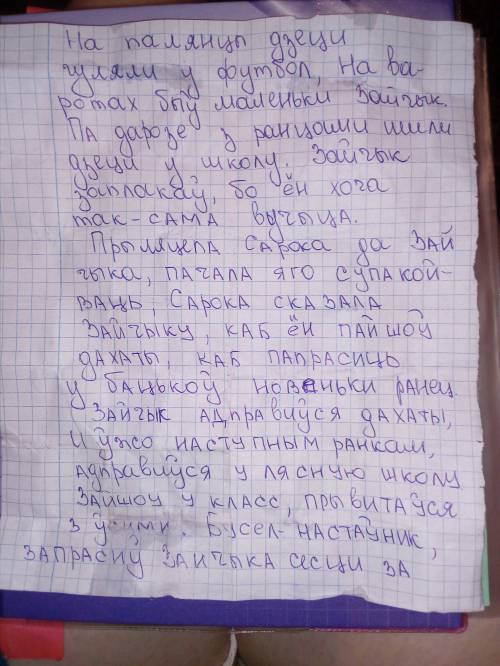 На палянцы дзеци
гуляли у футбол, На ва-
ротах быў маленьки Зайчык.
Па дарозе з ранцами ишли
дзеци у школу. Зайчык
заплакаў, бо ён хоча
так-сама вучыца.
Прыляцела Сарока да Зай
чыка, пачала яго супакой-
ваць, Сарока сказала
Зайчыку, каб ён пайшоў
дахаты, каб папрасиць
у бацькоў новеньки ранец.
Зайчык адправиўся дахаты,
и ўжо наступным ранкам,
адправиўся у лясную школу
Зайшоу у класс, прывитаўся
з Бусел-настаўник,
запрасиў заичыка сесци за